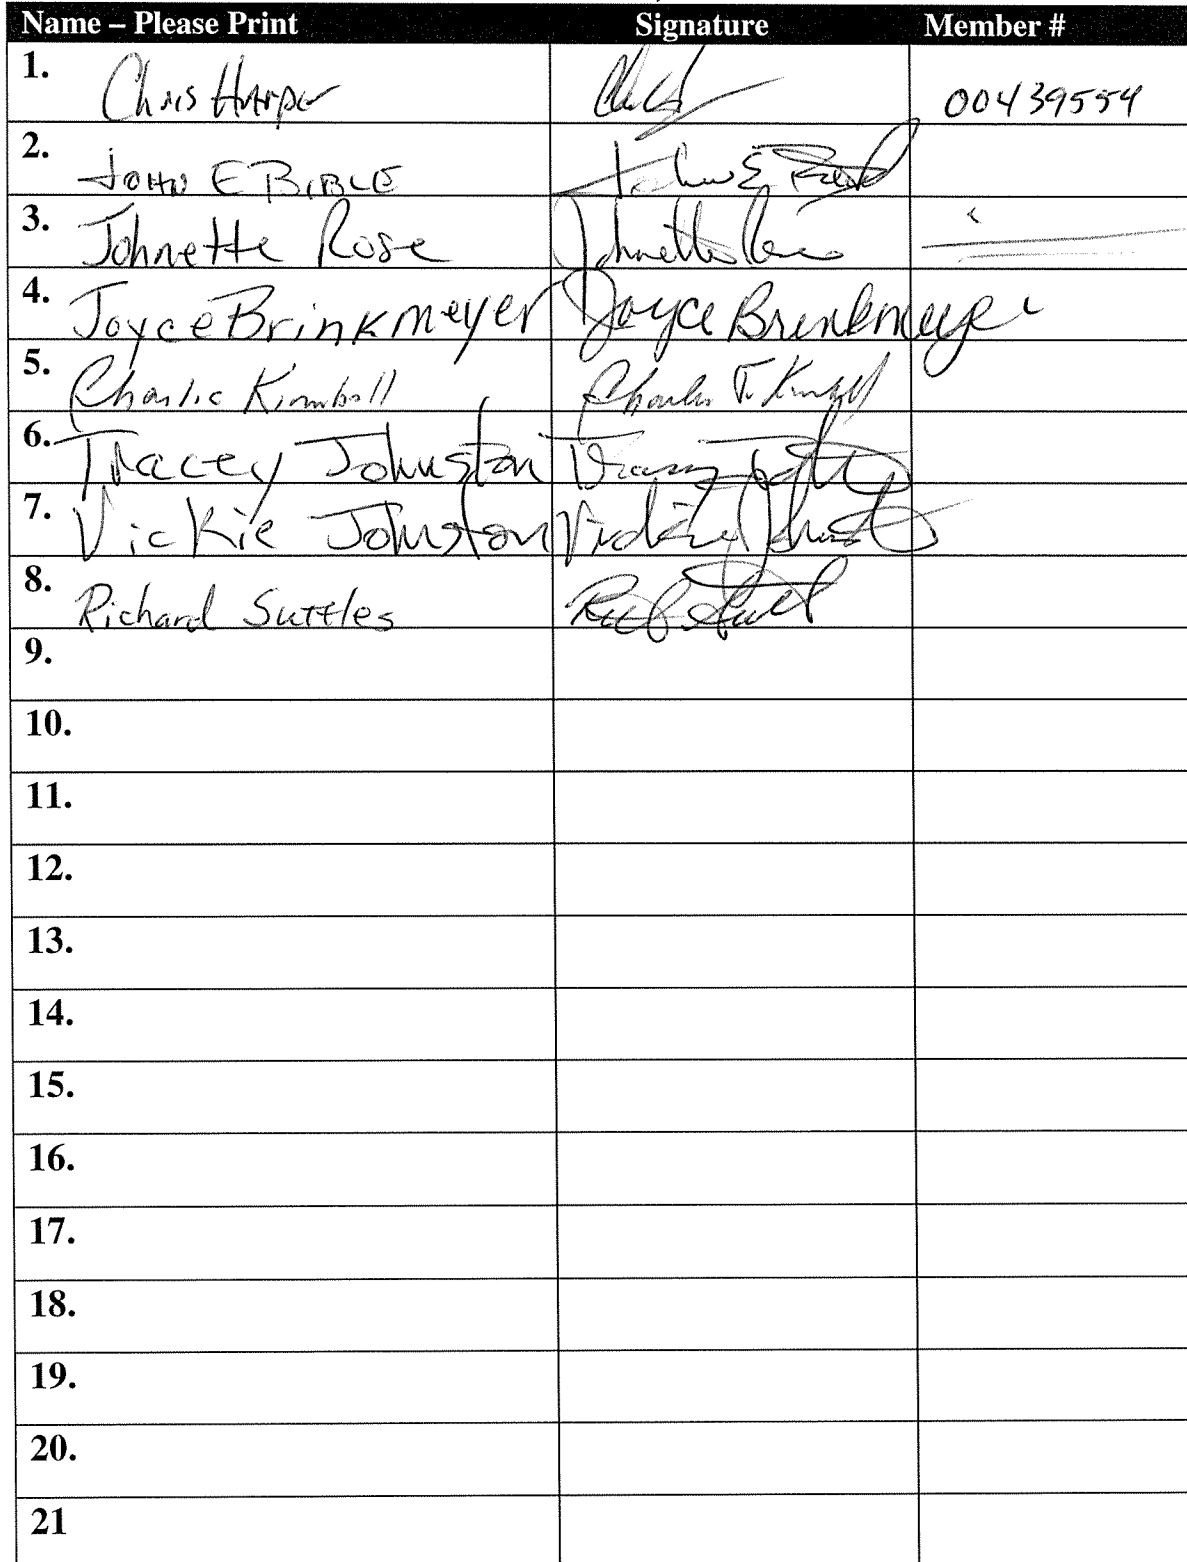 Name – Please Print Signature Member #
1. Chris Harper 00439554
2. JOHN E BIBLE John E
3. Johnette Rose Johnette Rose
4. Joyce Brinkmeyer Joyce Brinkmeyer
5. Charlie Kimball Charles F. Kimball
6. Tracey Johnston Tracey
7. Vickie Johnston Vickie Johnston
8. Richard Suttles
9.
10.
11.
12.
13.
14.
15.
16.
17.
18.
19.
20.
21